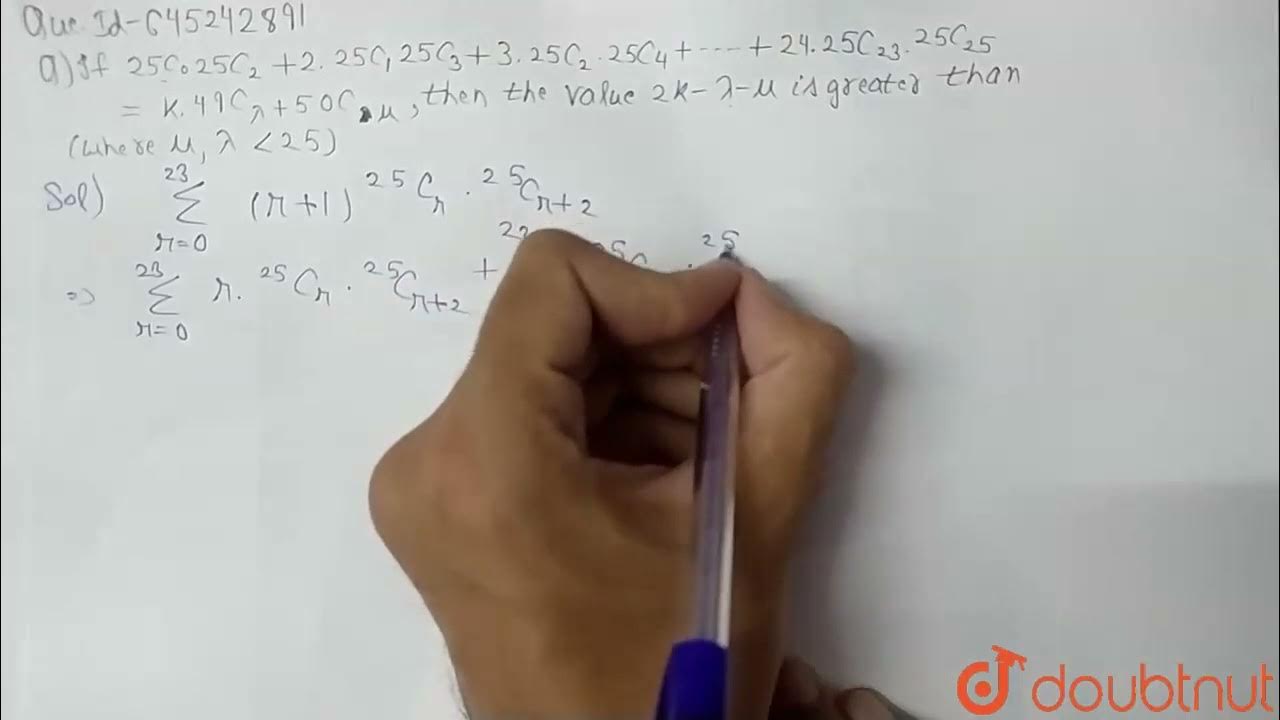 Que. Id-645242891
Q) If 25C₀25C₂ + 2. 25C₁25C₃ + 3. 25C₂.25C₄ + ---- + 24. 25C₂₃. 25C₂₅
= K. 49C_λ + 50C_μ, then the value 2K-λ-μ is greater than
(where μ, λ < 25)
Sol) 23 Σ r=0 (r+1) ²⁵Cᵣ . ²⁵Cᵣ₊₂
=) 23 Σ r=0 r. ²⁵Cᵣ . ²⁵Cᵣ₊₂ + . 25
doubtnut